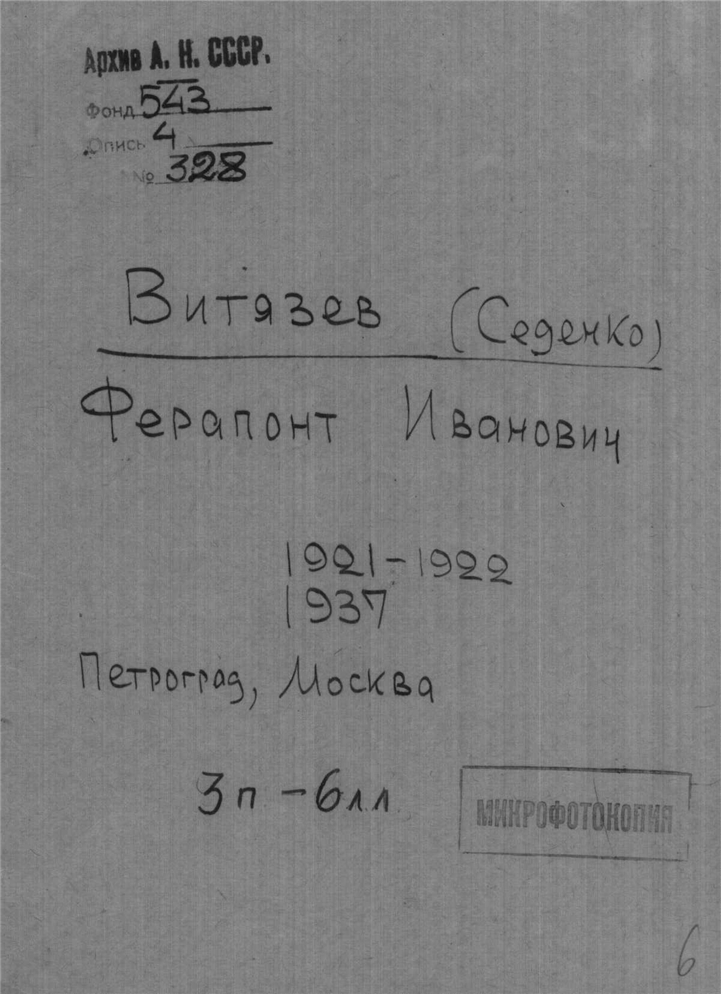 Архив А. Н. СССР.
Фонд 543
Опись 4
№ 328
Витязев (Седенко)
Ферапонт Иванович
1921-1922
1937
Петроград, Москва
3п - 6лл
МИКРОФОТОКОПИЯ
6